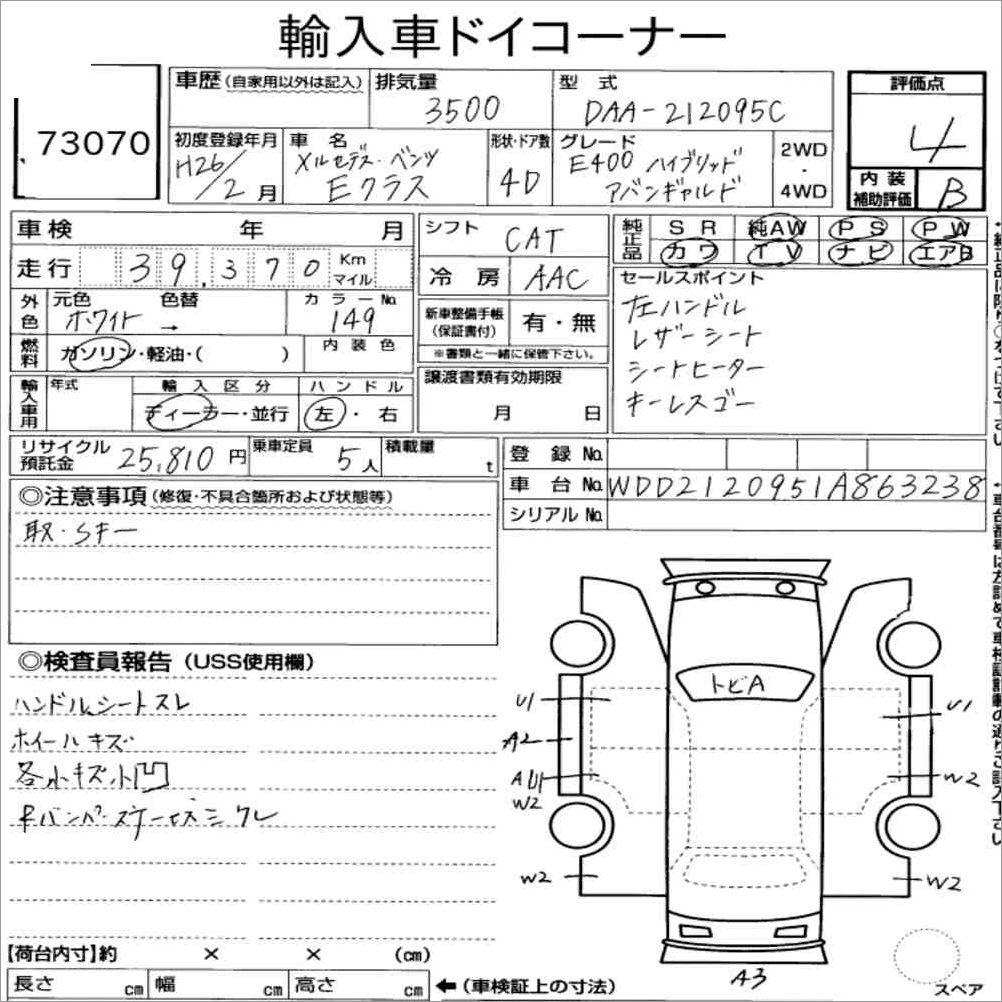 輸入車ドイコーナー
73070
車歴(自家用以外は記入)
排気量
3500
型 式
DAA-212095C
評価点
4
初度登録年月
H26/2月
車 名
メルセデス・ベンツ
Eクラス
形状・ドア数
4D
グレード
E400 ハイブリッド
アバンギャルド
2WD
・
4WD
内装
補助評価
B
車検 年 月
走行 39,370 Km
マイル
シフト CAT
冷房 AAC
純正品
SR 純AW PS PW
カワ TV ナビ エアB
外色
元色 色替 カラーNo.
ホワイト → 149
燃料
ガソリン・軽油・( )
内装色
新車整備手帳
(保証書付)
有・無
※書類と一緒に保管下さい。
セールスポイント
左ハンドル
レザーシート
シートヒーター
キーレスゴー
輸入車用
年式
輸入区分
ディーラー・並行
ハンドル
左・右
譲渡書類有効期限
月 日
リサイクル
預託金
25,810円
乗車定員
5人
積載量
t
登録No.
車台No. WDD2120951A863238
シリアルNo.
◎注意事項(修復・不具合箇所および状態等)
取・Sキー
◎検査員報告(USS使用欄)
ハンドル、シートスレ
ホイールキズ
各小キズ小凹
トビA
U1
U1
A2
AU1
W2
W2
W2
W2
A3
スペア
【荷台内寸】約 × × (cm)
長さ cm 幅 cm 高さ cm
←(車検証上の寸法)